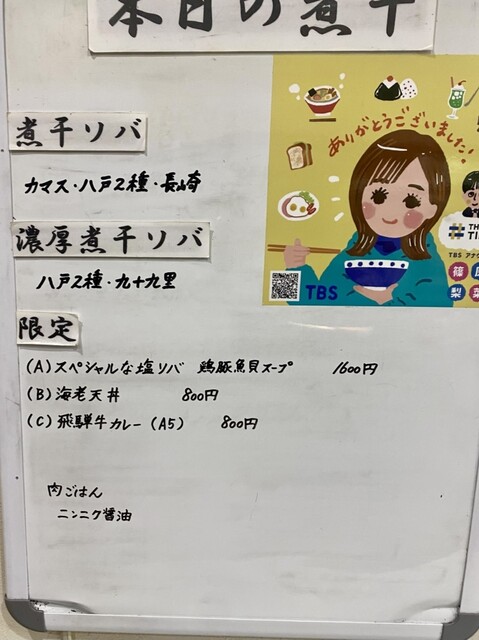 本日の煮干
煮干ソバ
カマス・八戸2種・長崎
濃厚煮干ソバ
八戸2種・九十九里
限定
(A)スペシャルな塩ソバ 鶏豚魚貝スープ 1600円
(B)海老天丼 800円
(C)飛騨牛カレー(A5) 800円
肉ごはん
ニンニク醤油
ありがとうございました!
TBS
TH
TI
TBS アナウ
篠
梨
菜